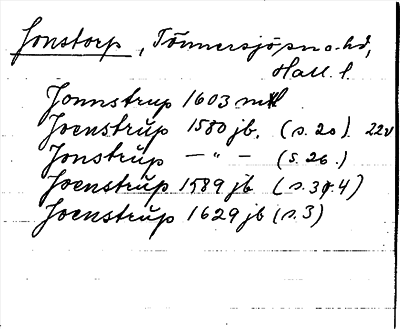 Jonstorp, Tönnersjöpn o. hd,
Hall. l.
Jonnstrup 1603 mtl
Joenstrup 1580 jb. (s. 20) 22v
Jonstrup — " — (s. 26.)
Joenstrup 1589 jb (s. 34)
Joenstrup 1629 jb (s. 3)